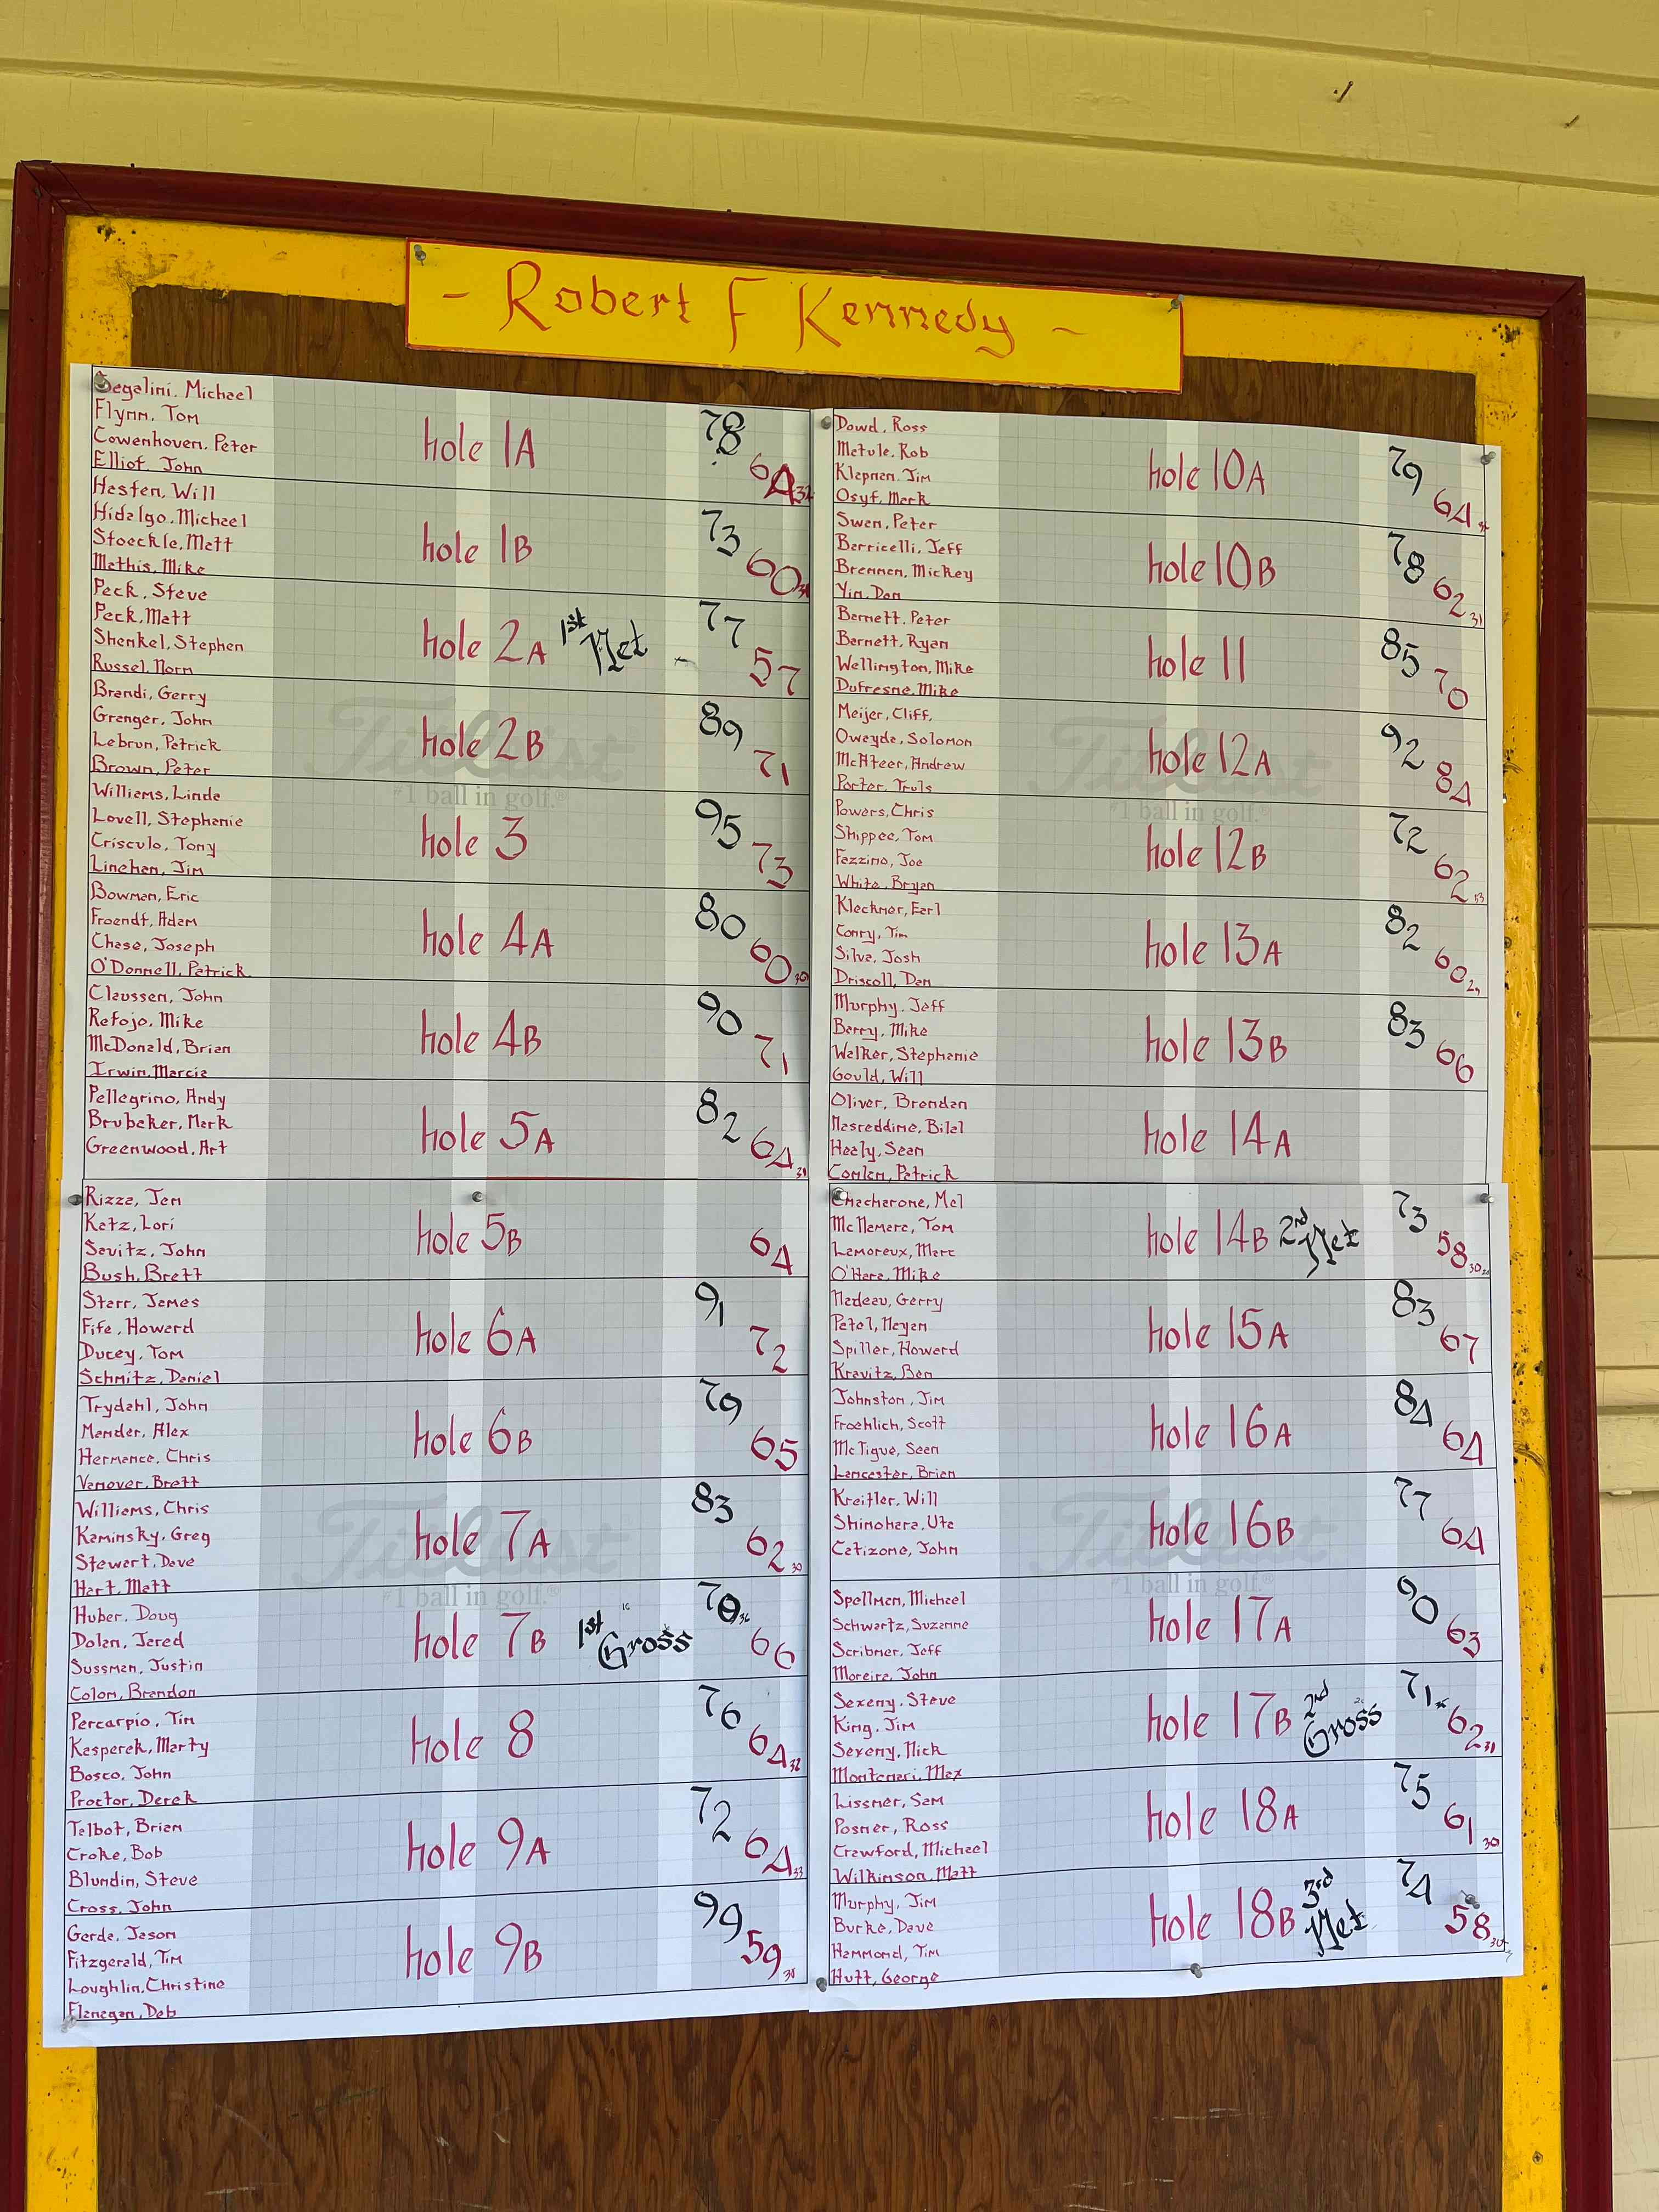 - Robert F Kennedy -
Segalini, Michael
Flynn, Tom
Cowenhoven, Peter
Elliot, John
hole 1A
78
64
32
Hasten, Will
Hidalgo, Michael
Stoeckle, Matt
Mathis, Mike
hole 1B
73
60
Peck, Steve
Peck, Matt
Shenkel, Stephen
Russel, Norn
hole 2A
1st Net
77
57
Brandi, Gerry
Granger, John
Lebrun, Patrick
Brown, Peter
hole 2B
89
71
Titleist
#1 ball in golf.®
Williams, Linda
Lovell, Stephanie
Crisculo, Tony
Linehan, Jim
hole 3
95
73
Bowman, Eric
Froendt, Adam
Chase, Joseph
O'Donnell, Patrick
hole 4A
80
60
30
Claussen, John
Refojo, Mike
McDonald, Brian
Irwin, Marcia
hole 4B
90
71
Pellegrino, Andy
Brubaker, Mark
Greenwood, Art
hole 5A
82
64
31
Rizza, Jen
Katz, Lori
Savitz, John
Bush, Brett
hole 5B
64
Starr, James
Fife, Howard
Ducey, Tom
Schmitz, Daniel
hole 6A
91
72
Trydahl, John
Mander, Alex
Hermance, Chris
Vanover, Brett
hole 6B
79
65
Williams, Chris
Kaminsky, Greg
Stewart, Dave
Hart, Matt
hole 7A
83
62
30
Titleist
#1 ball in golf.®
Huber, Doug
Dolan, Jared
Sussman, Justin
Colon, Brandon
hole 7B
1st Gross
70
36
66
Percarpio, Tim
Kasperek, Marty
Bosco, John
Proctor, Derek
hole 8
76
64
32
Talbot, Brian
Croke, Bob
Blundin, Steve
Cross, John
hole 9A
72
64
33
Garda, Jason
Fitzgerald, Tim
Loughlin, Christine
Flanagan, Deb
hole 9B
99
59
Dowd, Ross
Matule, Rob
Klapman, Jim
Osyf, Mark
hole 10A
79
64
Swan, Peter
Barricelli, Jeff
Brennan, Mickey
Yin, Dan
hole 10B
78
62
31
Barnett, Peter
Barnett, Ryan
Wellington, Mike
Dufresne, Mike
hole 11
85
70
Meijer, Cliff,
Oweyda, Solomon
McAteer, Andrew
Porter, Truls
hole 12A
92
84
Titleist
#1 ball in golf.®
Powers, Chris
Shippee, Tom
Fazzino, Joe
White, Bryan
hole 12B
72
62
33
Kleckner, Earl
Conry, Tim
Silva, Josh
Driscoll, Dan
hole 13A
82
60
29
Murphy, Jeff
Barry, Mike
Walker, Stephanie
Gould, Will
hole 13B
83
66
Oliver, Brendan
Nasreddine, Bilal
Healy, Sean
Conlan, Patrick
hole 14A
Chacharone, Mel
McNamara, Tom
Lamoreux, Marc
O'Hara, Mike
hole 14B
2nd Net
73
58
30
Nadeau, Gerry
Patel, Nayan
Spiller, Howard
Kravitz, Ben
hole 15A
83
67
Johnston, Jim
Froehlich, Scott
McTigue, Sean
Lancaster, Brian
hole 16A
84
64
Kreitler, Will
Shinohara, Uta
Catizone, John
hole 16B
77
64
Titleist
#1 ball in golf.®
Spellman, Michael
Schwartz, Suzanne
Scribner, Jeff
Moreira, John
hole 17A
90
63
Saxeny, Steve
King, Jim
Saxeny, Nick
Montenari, Max
hole 17B
2nd Gross
71
62
31
Lissner, Sam
Posner, Ross
Crawford, Michael
Wilkinson, Matt
hole 18A
75
61
30
Murphy, Jim
Burke, Dave
Hammond, Tim
Hutt, George
hole 18B
3rd Net
74
58